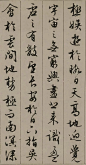 極娛遊於暇日天高地迥覺
宇宙之無窮興盡悲來識盈
虛之有數望長安於日下指吳
會於雲間地勢極而南溟深